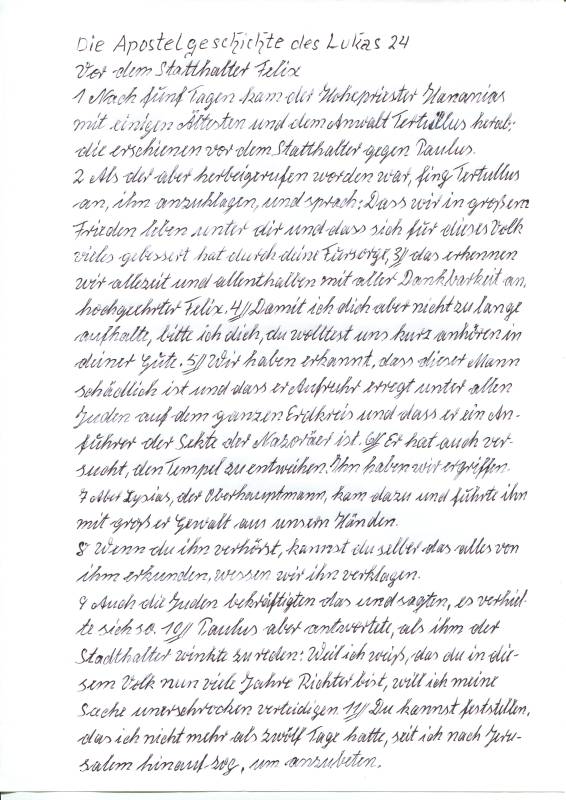 Die Apostelgeschichte des Lukas 24
Vor dem Statthalter Felix
1 Nach fünf Tagen kam der Hohepriester Hananias
mit einigen Ältesten und dem Anwalt Tertullus herab;
die erschienen vor dem Statthalter gegen Paulus.
2 Als der aber herbeigerufen worden war, fing Tertullus
an, ihn anzuklagen, und sprach: Dass wir in großem
Frieden leben unter dir und dass sich für dieses Volk
vieles gebessert hat durch deine Fürsorge, 3// das erkennen
wir allezeit und allenthalben mit aller Dankbarkeit an,
hochgeehrter Felix. 4// Damit ich dich aber nicht zu lange
aufhalte, bitte ich dich, du wolltest uns kurz anhören in
deiner Güte. 5// Wir haben erkannt, dass dieser Mann
schädlich ist und dass er Aufruhr erregt unter allen
Juden auf dem ganzen Erdkreis und dass er ein An-
führer der Sekte der Nazoräer ist. 6// Er hat auch ver-
sucht, den Tempel zu entweihen. Ihn haben wir ergriffen.
7 Aber Lysias, der Oberhauptmann, kam dazu und führte ihn
mit großer Gewalt aus unsern Händen.
8 Wenn du ihn verhörst, kannst du selber das alles von
ihm erkunden, wessen wir ihn verklagen.
9 Auch die Juden bekräftigten das und sagten, es verhiel-
te sich so. 10// Paulus aber antwortete, als ihm der
Stadthalter winkte zu reden: Weil ich weiß, das du in die-
sem Volk nun viele Jahre Richter bist, will ich meine
Sache unerschrocken verteidigen 11// Du kannst feststellen,
das ich nicht mehr als zwölf Tage hatte, seit ich nach Jeru-
salem hinauf zog, um anzubeten.